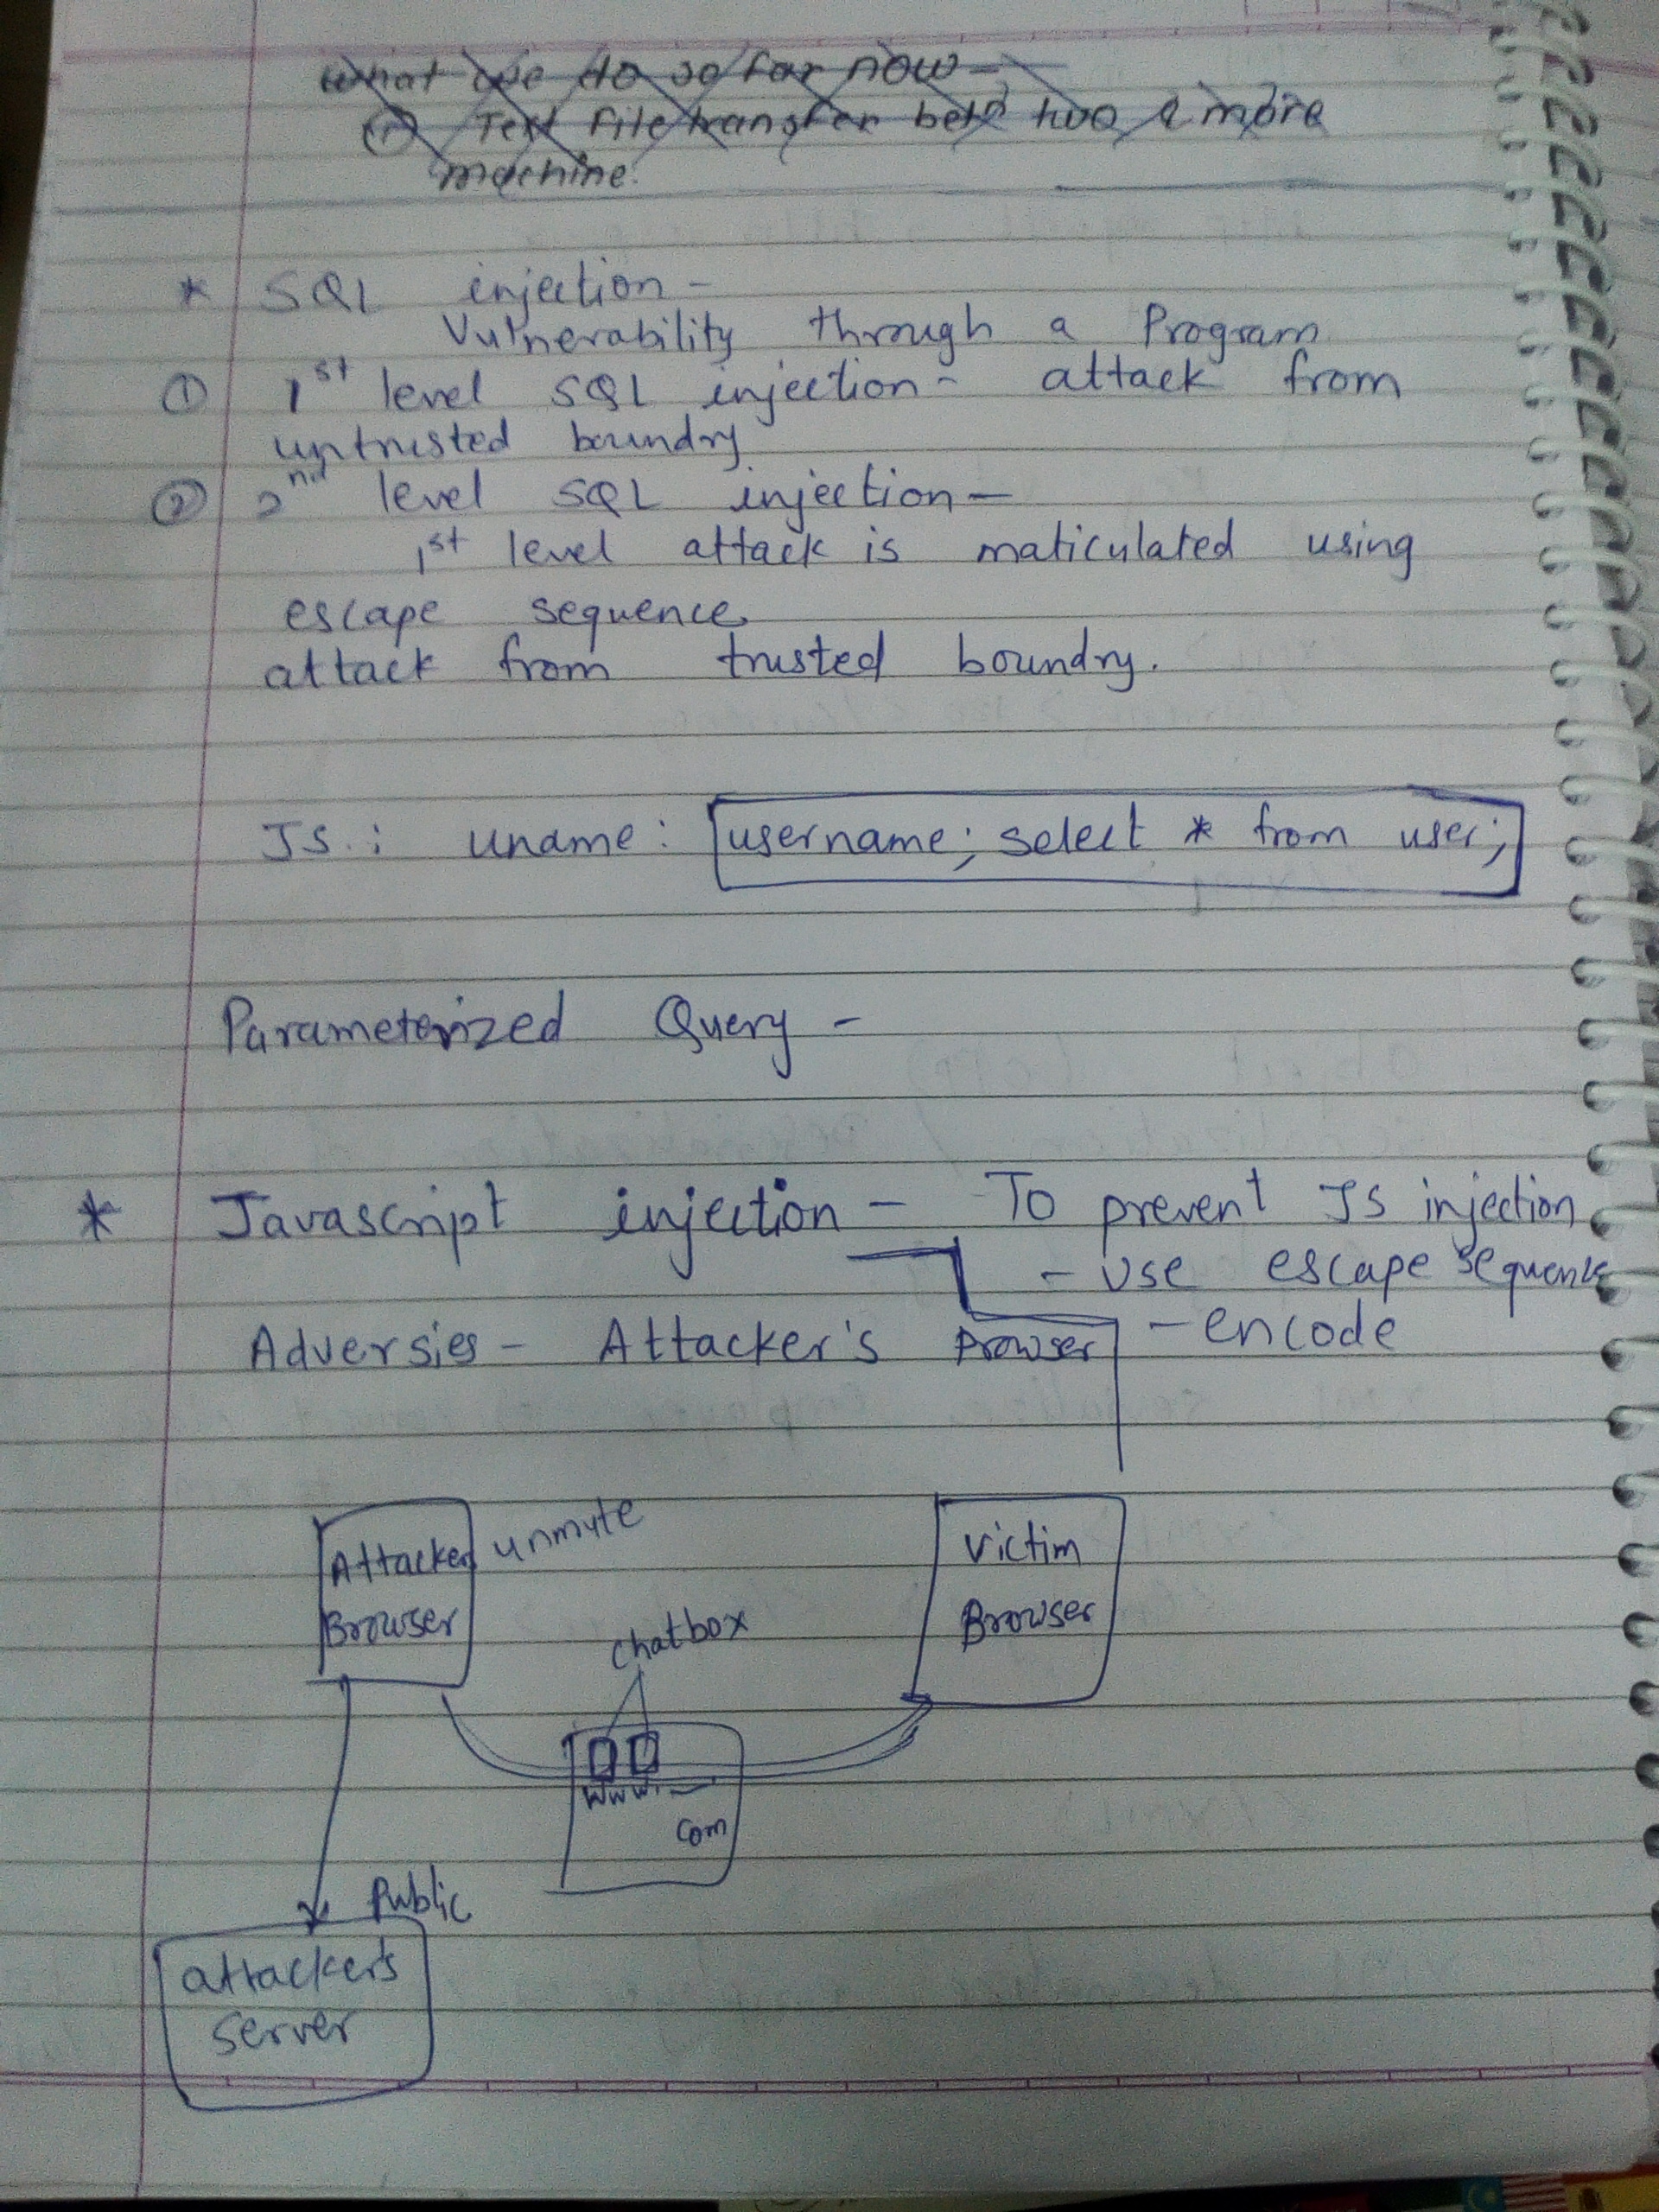 What we do so far now -
(1) Text file transfer betn two & more
machine.
* SQL injection -
Vulnerability through a Program
① 1st level SQL injection - attack from
untrusted boundry
② 2nd level SQL injection -
1st level attack is maticulated using
escape sequence
attack from trusted boundry.
JS. : uname: username; select * from user;
Parameterized Query -
* Javascript injection - To prevent JS injection
- use escape sequence
Adversies - Attacker's Browser - encode
Attacker unmute
Browser
Victim
Browser
chatbox
www.
com
Public
attacker's
server